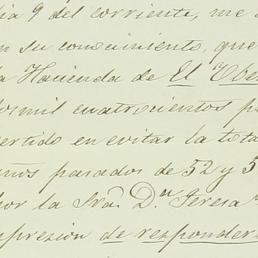 dia 9 del corriente, me
en su conocimiento, que
la Hacienda de El Obe
mil cuatrocientos p
vertido en evitar la tota
años pasados de 52 y 5
por la Sra. Dn Teresa
expresion de responder